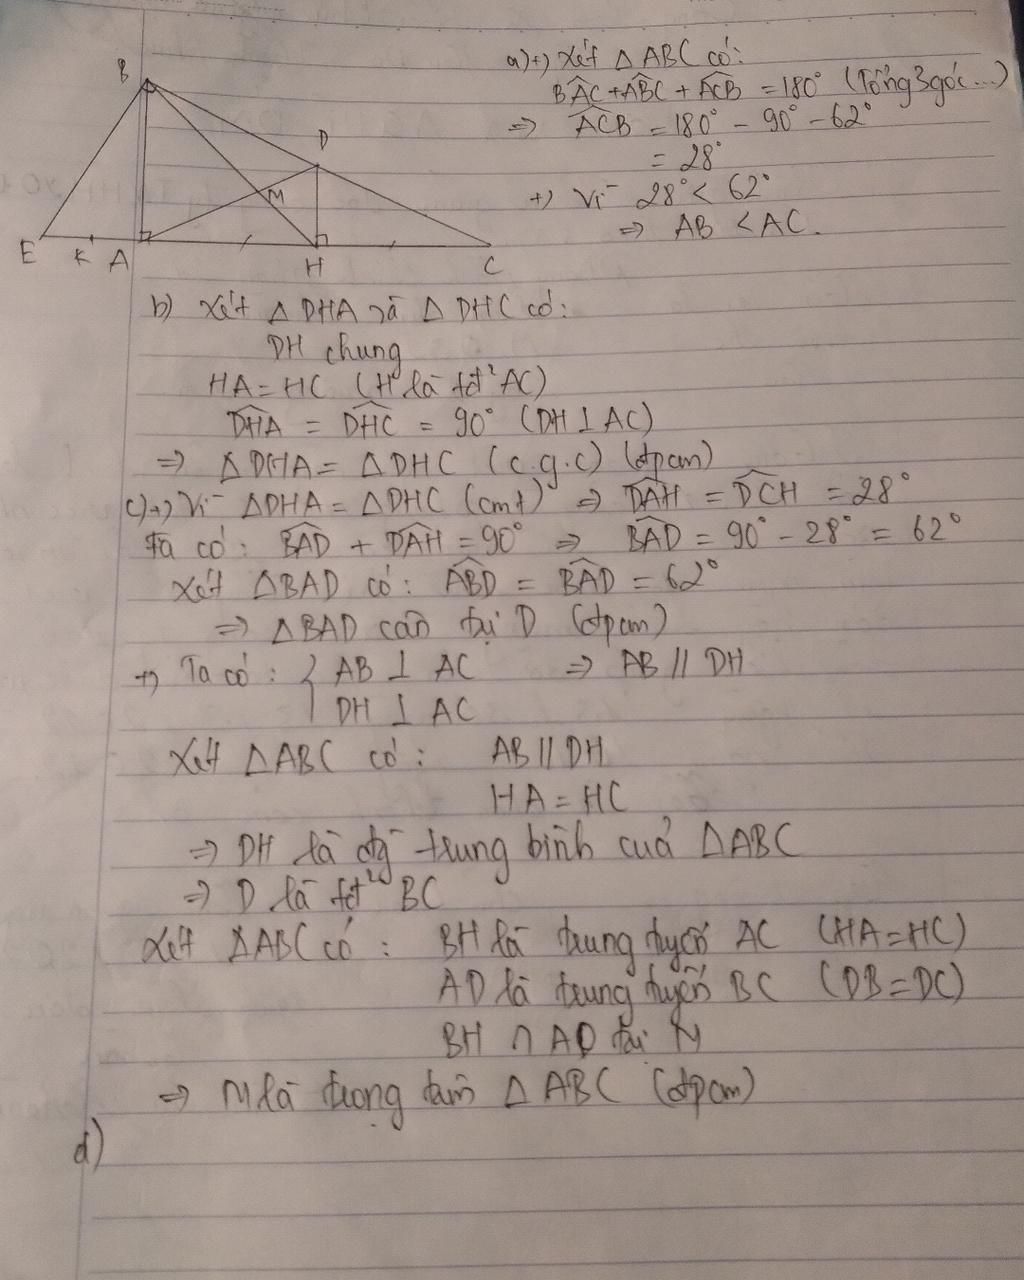 B
D
M
E K A H C
a) +) Xét Δ ABC có:
BÂC + AB̂C + AĈB = 180° (Tổng 3 góc...)
=> AĈB = 180° - 90° - 62°
= 28°
+) Vì 28° < 62°
=> AB < AC.
b) Xét Δ DHA và Δ DHC có:
DH chung
HA = HC (H là tđ' AC)
DĤA = DĤC = 90° (DH ⊥ AC)
=> Δ DHA = Δ DHC (c.g.c) (đpcm)
c) +) Vì ΔDHA = ΔDHC (cmt) => DÂH = DĈH = 28°
Ta có: BÂD + DÂH = 90° => BÂD = 90° - 28° = 62°
Xét ΔBAD có: AB̂D = BÂD = 62°
=> ΔBAD cân tại D (đpcm)
+) Ta có: { AB ⊥ AC => AB // DH
DH ⊥ AC
Xét ΔABC có: AB // DH
HA = HC
=> DH là đg trung bình cuả ΔABC
=> D là tđ' BC
Xét ΔABC có: BH là trung tuyến AC (HA=HC)
AD là trung tuyến BC (DB=DC)
BH ∩ AD tại M
=> M là trọng tâm Δ ABC (đpcm)
d)